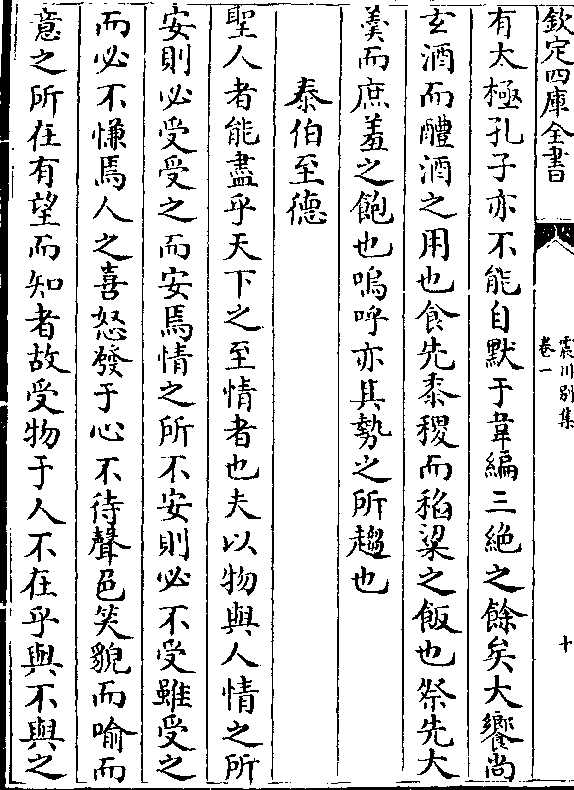 欽定四庫全書
震川别集
卷一
十
有太極孔子亦不能自默于韋編三絶之餘矣大饗尚
玄酒而醴酒之用也食先黍稷而稻粱之飯也祭先大
羮而庶羞之飽也嗚呼亦其勢之所趨也
泰伯至德
聖人者能盡乎天下之至情者也夫以物與人情之所
安則必受受之而安焉情之所不安則必不受雖受之
而必不慊焉人之喜怒發于心不待聲色笑貌而喻而
意之所在有望而知者故受物于人不在乎與不與之